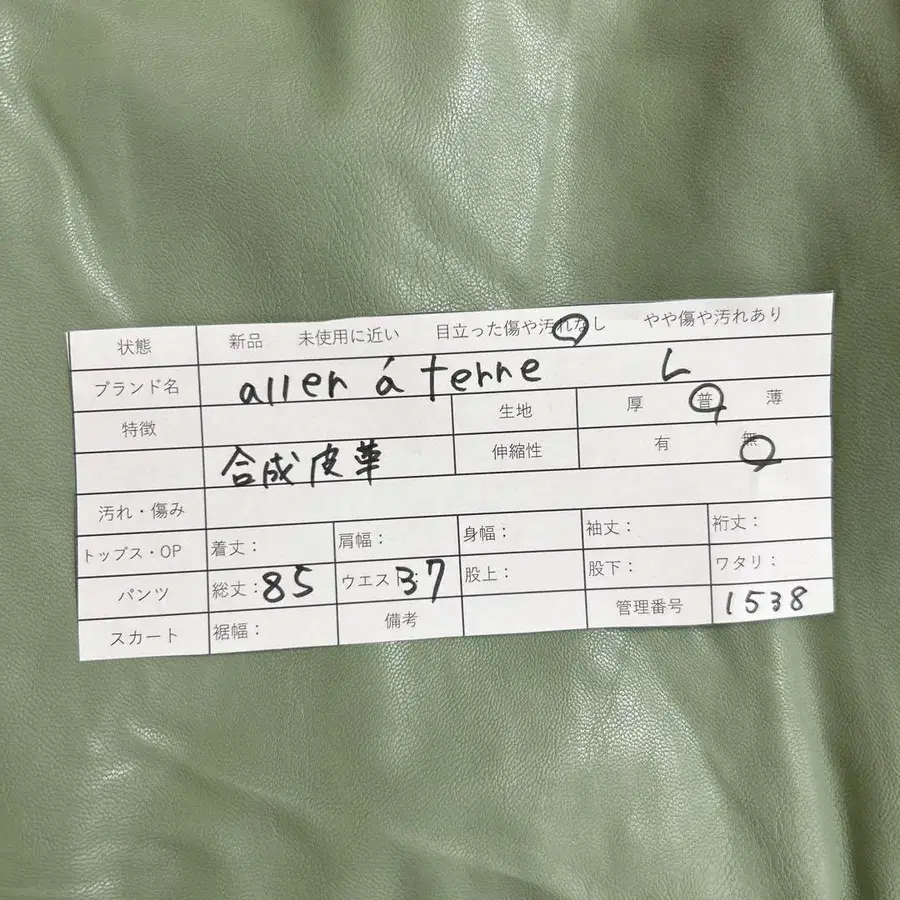 状態 新品 未使用に近い 目立った傷や汚れなし やや傷や汚れあり
ブランド名 aller á terre L
特徴 生地 厚 普 薄
合成皮革 伸縮性 有 無
汚れ・傷み
トップス・OP 着丈: 肩幅: 身幅: 袖丈: 裄丈:
パンツ 総丈:85 ウエスト:37 股上: 股下: ワタリ:
スカート 裾幅: 備考 管理番号 1538